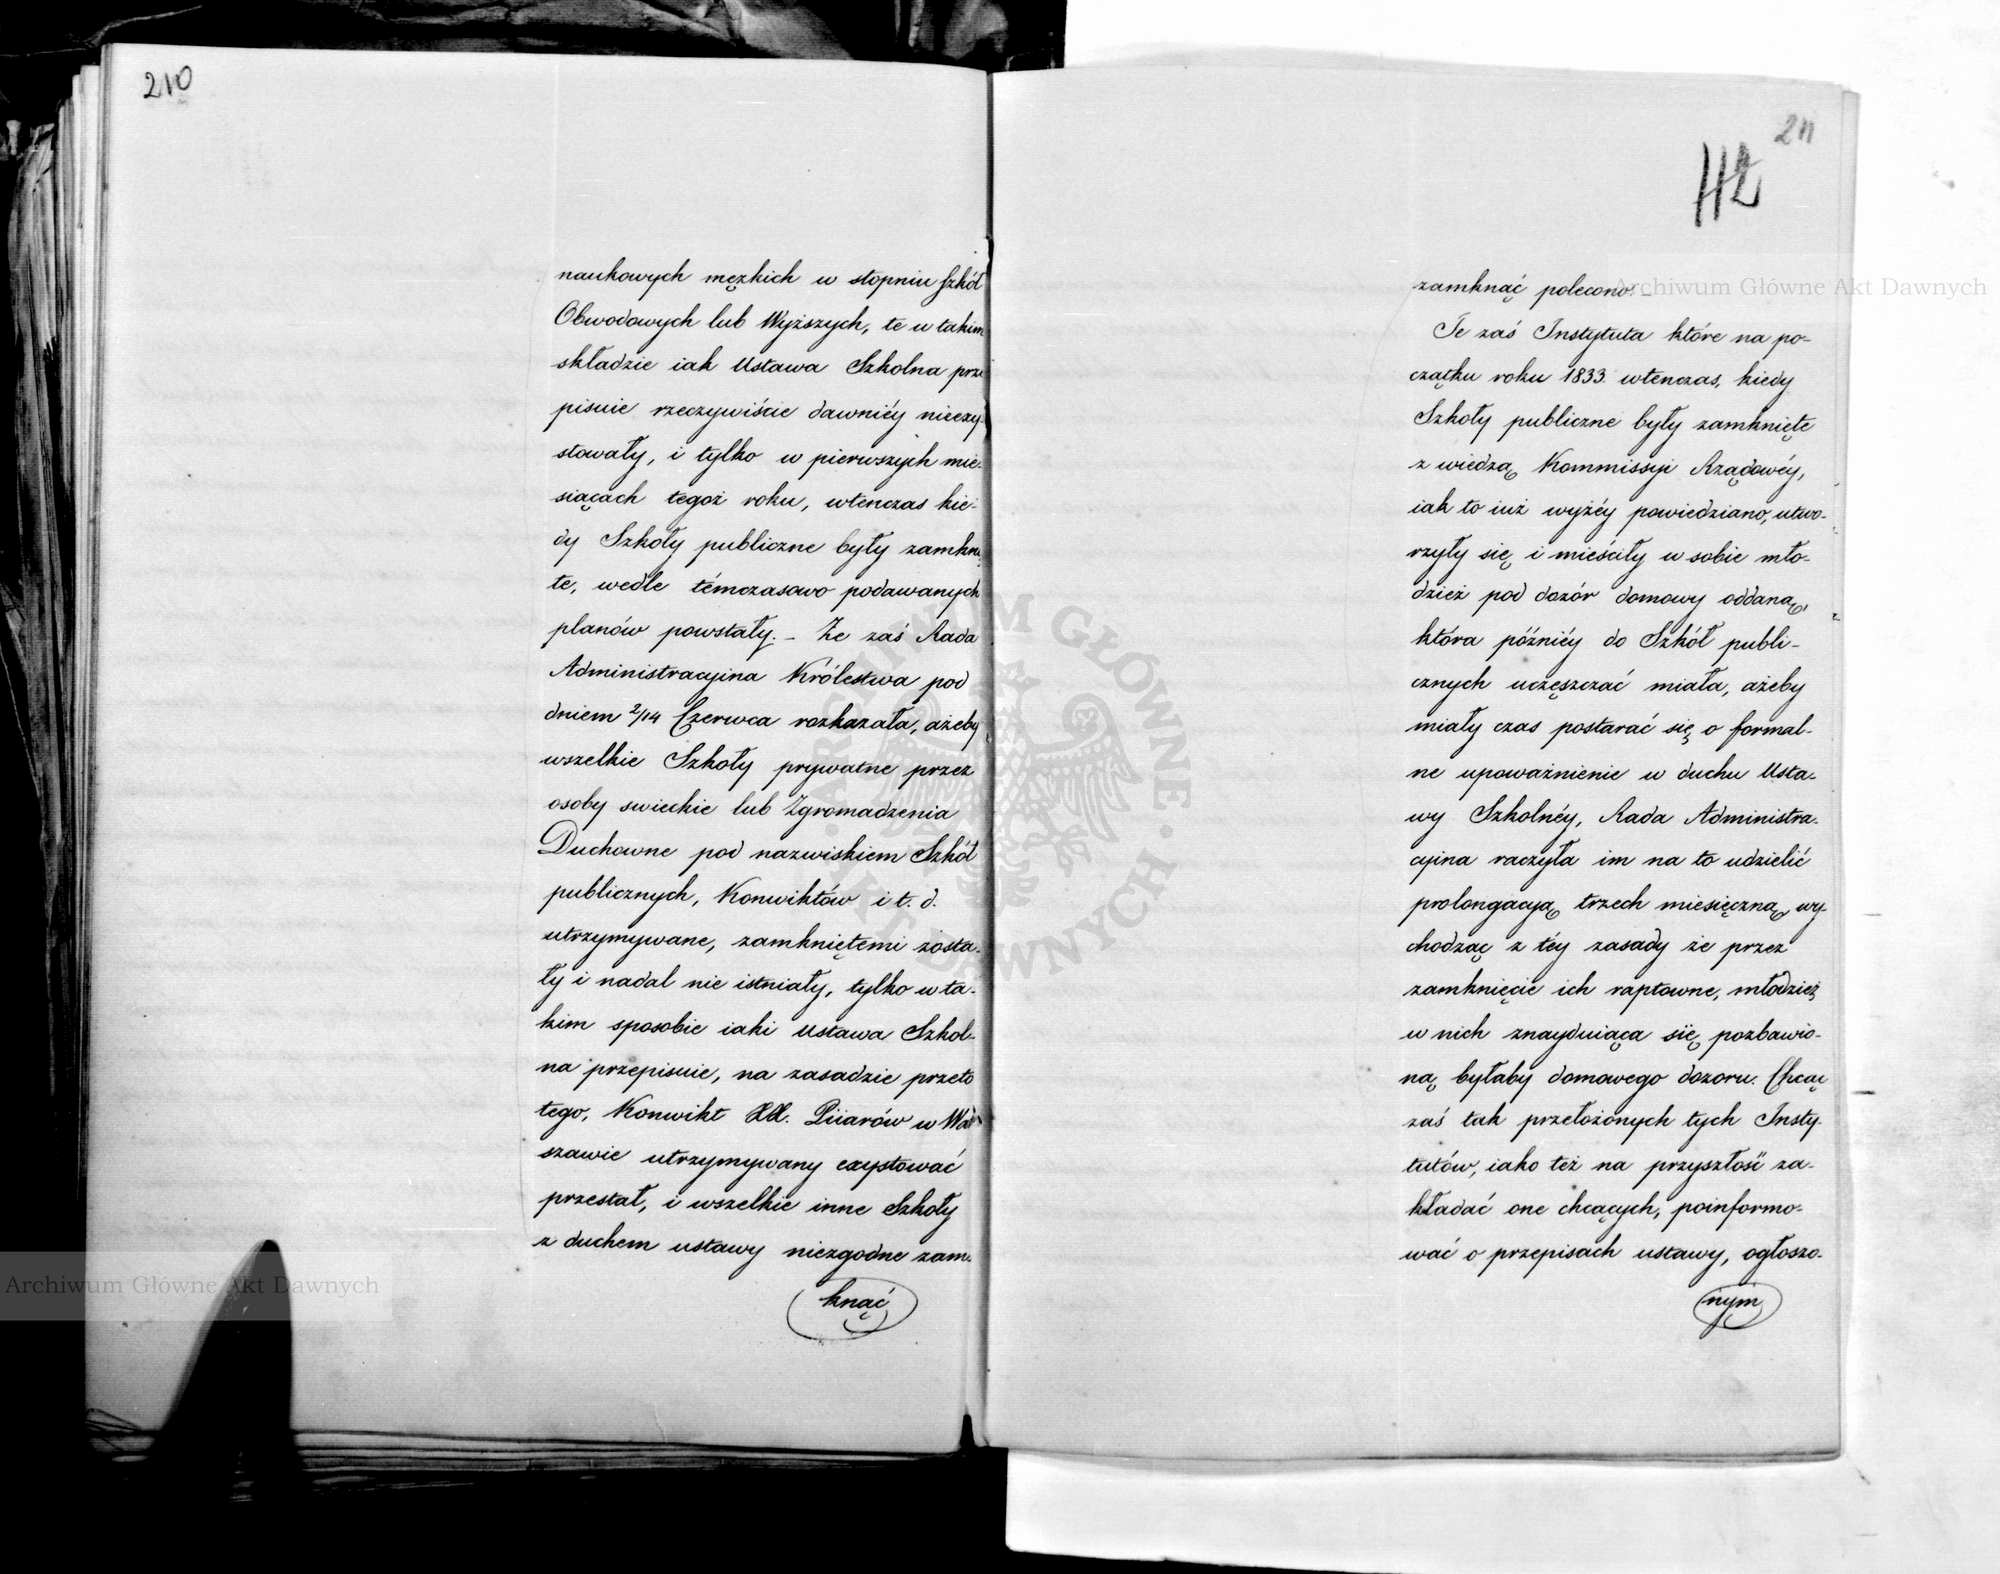 210
naukowych męzkich w stopniu Szkół
Obwodowych lub Wyższych, te w takim
składzie iak Ustawa Szkolna prze
pisuie rzeczywiście dawniéy nieexy-
stowały, i tylko w pierwszych mie-
siącach tegoż roku, wtenczas kie-
dy Szkoły publiczne były zamknię
te, wedle témczasowo podawanych
planów powstały. - Że zaś Rada
Administracyina Królestwa pod
dniem 2/14 Czerwca rozkazała, ażeby
wszelkie Szkoły prywatne przez
osoby swieckie lub Zgromadzenia
Duchowne pod nazwiskiem Szkół
publicznych, Konwiktów i t. d.
utrzymywane, zamkniętemi zosta-
ły i nadal nie istniały, tylko w ta-
kim sposobie iaki Ustawa Szkol-
na przepisuie, na zasadzie przeto
tego, Konwikt XX. Piiarów w War
szawie utrzymywany exystować
przestał, i wszelkie inne Szkoły
z duchem ustawy niezgodne zam-
knąć
211
112
zamknąć polecono. -
Te zaś Instytuta które na po-
czątku roku 1833. wtenczas, kiedy
Szkoły publiczne były zamknięte
z wiedzą Kommissyi Rządowéy,
iak to iuż wyżéy powiedziano, utwo-
rzyły się i mieściły w sobie mło-
dzież pod dozór domowy oddaną,
która późniéy do Szkół publi-
cznych uczęszczać miała, ażeby
miały czas postarać się o formal-
ne upoważnienie w duchu Usta-
wy Szkolnéy, Rada Administra-
cyina raczyła im na to udzielić
prolongacyą trzech miesięczną, wy-
chodząc z téy zasady że przez
zamknięcie ich raptowne, młodzież
w nich znayduiąca się, pozbawio-
ną byłaby domowego dozoru. Chcąc
zaś tak przełożonych tych Insty-
tutów, iako też na przyszłość za-
kładać one chcących, poinformo-
wać o przepisach ustawy, ogłoszo-
nym
Archiwum Główne Akt Dawnych
Archiwum Główne Akt Dawnych
ARCHIWUM GŁÓWNE AKT DAWNYCH